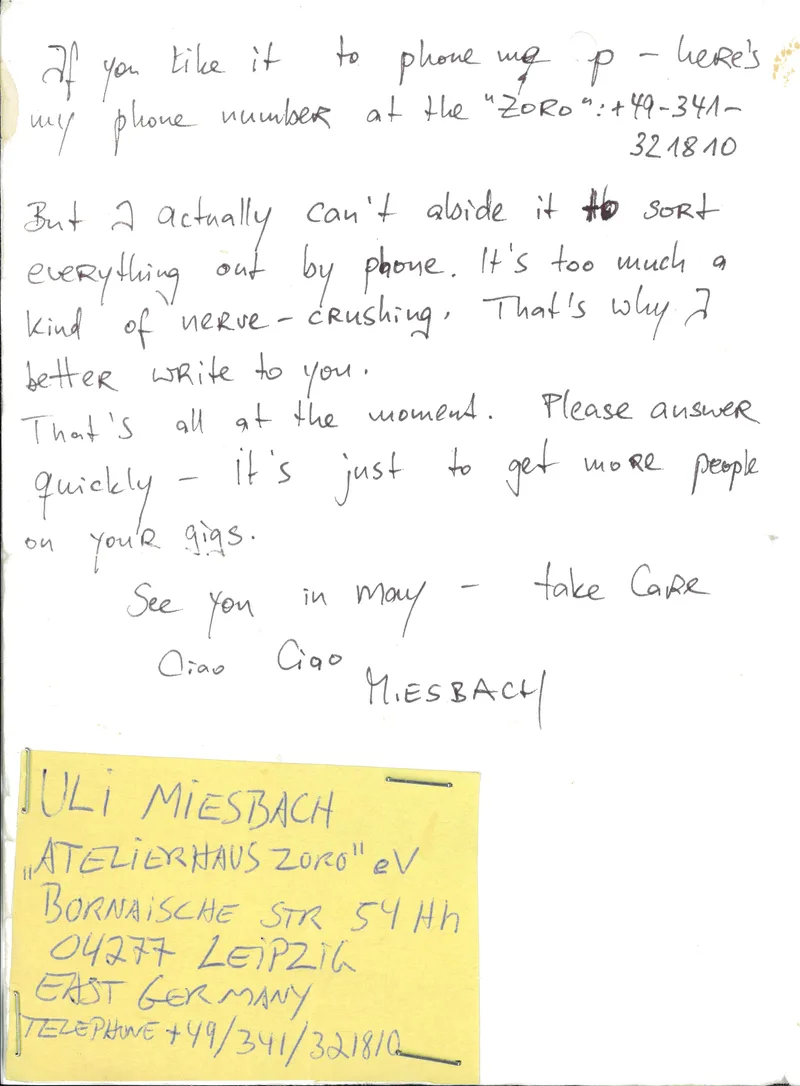 If you like it to phone me p - here's
my phone number at the "ZORO": +49-341-
321810
But I actually can't abide it to sort
everything out by phone. It's too much a
kind of nerve-crushing. That's why I
better write to you.
That's all at the moment. Please answer
quickly - it's just to get more people
on your gigs.
See you in may - take Care
Ciao Ciao
MIESBACH
ULI MIESBACH
„ATELIERHAUS ZORO" eV
BORNAISCHE STR 54 Hh
04277 LEIPZIG
EAST GERMANY
TELEPHONE +49/341/321810